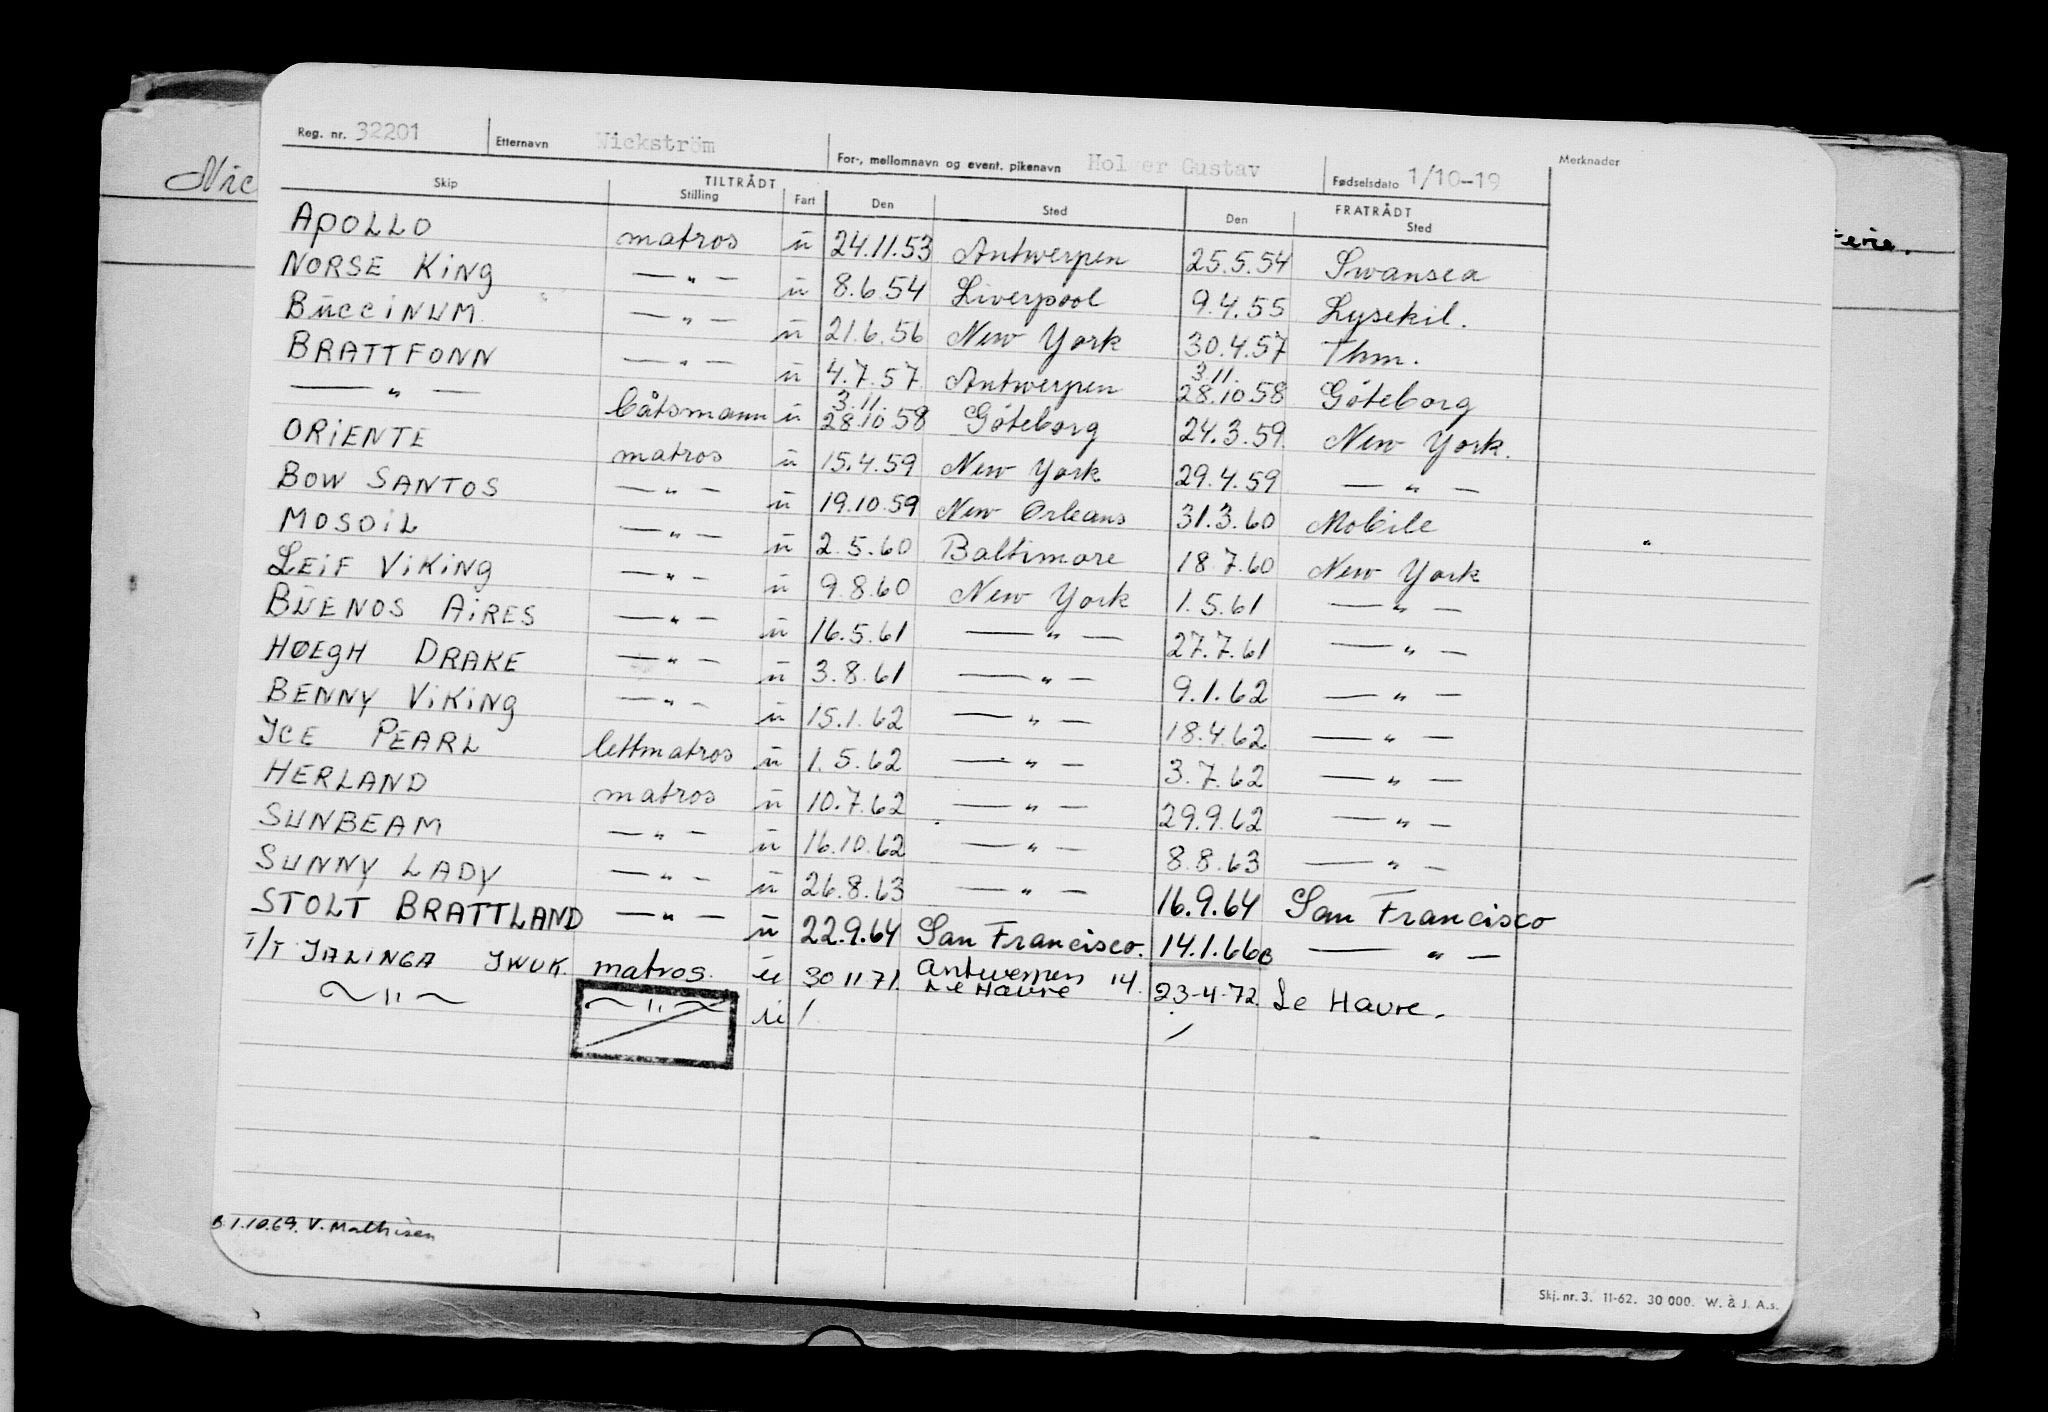 Reg. nr. 32201 Etternavn Wickström For-, mellomnavn og event. pikenavn Holger Gustav Fødselsdato 1/10-19 Merknader
TILTRÅDT FRATRÅDT
Skip Stilling Fart Den Sted Den Sted
APOLLO matros u 24.11.53 Antwerpen 25.5.54 Swansea
NORSE KING — " — u 8.6.54 Liverpool 9.4.55 Lysekil.
BUCCINUM — " — u 21.6.56 New York 30.4.57 Thm.
BRATTFONN — " — u 4.7.57 Antwerpen 3.11. 28.10.58 Göteborg
— " — båtsmann u 3.11. 28.10.58 Göteborg 24.3.59. New York.
ORIENTE matros u 15.4.59 New York 29.4.59 — " —
BOW SANTOS — " — u 19.10.59 New Orleans 31.3.60 Mobile
MOSOIL — " — u 2.5.60 Baltimore 18.7.60 New York
LEIF VIKING — " — u 9.8.60 New York 1.5.61 — " —
BUENOS AIRES — " — u 16.5.61 — " — 27.7.61 — " —
HØEGH DRAKE — " — u 3.8.61 — " — 9.1.62 — " —
BENNY VIKING — " — u 15.1.62 — " — 18.4.62 — " —
ICE PEARL lettmatros u 1.5.62 — " — 3.7.62 — " —
HERLAND matros u 10.7.62 — " — 29.9.62 — " —
SUNBEAM — " — u 16.10.62 — " — 8.8.63 — " —
SUNNY LADY — " — u 26.8.63 — " — 16.9.64 San Francisco
STOLT BRATTLAND — " — u 22.9.64 San Francisco. 14.1.66 — " —
T/T JALINGA JWUK. matros. u 30 11 71. Antwerpen 23-4-72. Le Havre.
— " — — " — u / Le Havre 14. /
B 1.10.69. V. Mathisen
Skj. nr. 3. 11-62. 30 000. W. & J. A.s.